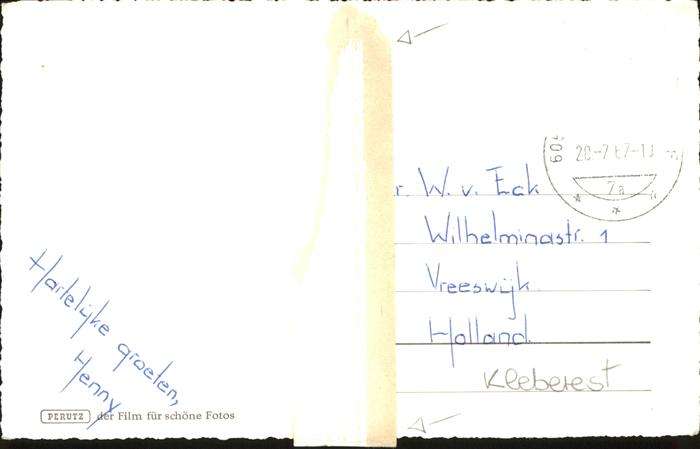 Hartelijke groeten,
Henny
PERUTZ der Film für schöne Fotos
r. W. v. Eck
Wilhelminastr. 1
Vreeswijk
Holland.
Kleberest
7a